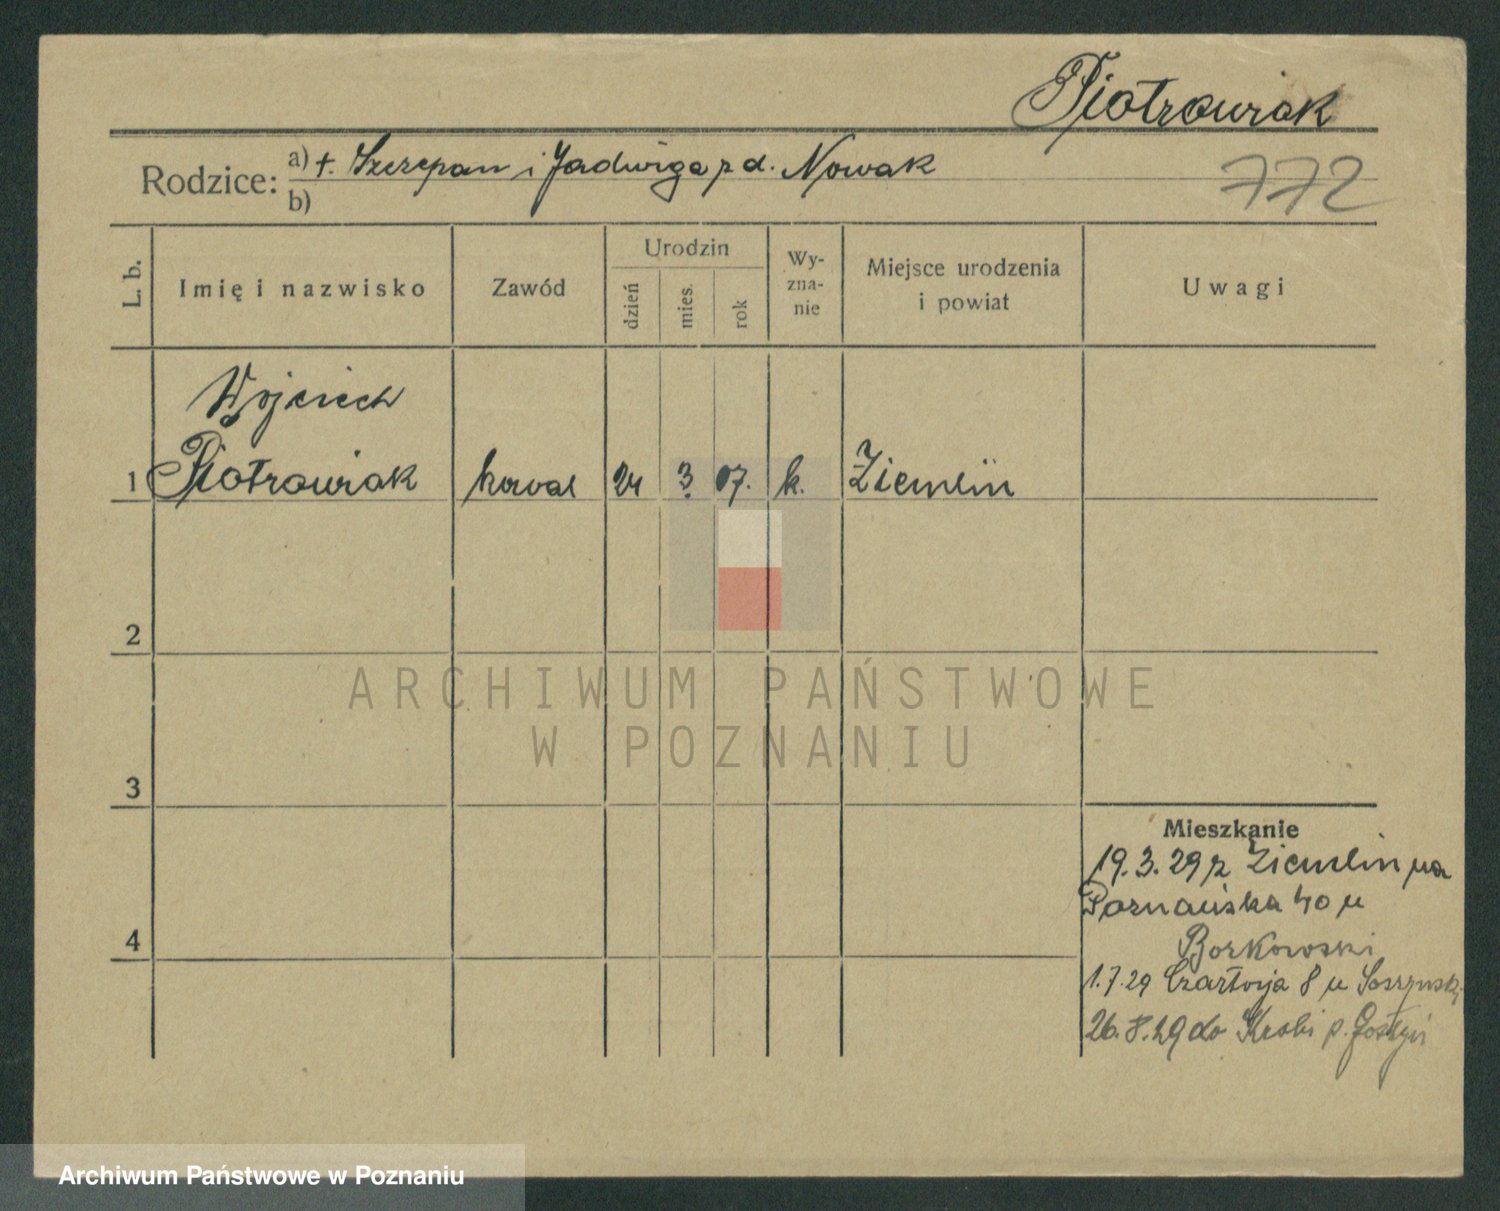 Piotrowiak
Rodzice: a) †. Szczepan i Jadwiga z d. Nowak
b)
772
L. b.
Imię i nazwisko
Zawód
Urodzin
dzień
mies.
rok
Wy-
zna-
nie
Miejsce urodzenia
i powiat
Uwagi
Wojciech
1 Piotrowiak kowal 24 3 07. k. Ziemlin
2
3
4
Mieszkanie
19.3.29 z Ziemlin na
Poznańska 40 u
Borkowski
1.7.29 8 u
26.8.29 do Krobi p. Gostyń
ARCHIWUM PAŃSTWOWE
W POZNANIU
Archiwum Państwowe w Poznaniu